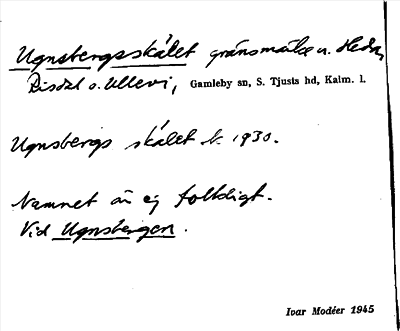 Ugnsbergsskålet gränsmärke n. Heda,
Risdal o. Ullevi, Gamleby sn, S. Tjusts hd, Kalm. l.
Ugnsbergs skålet k. 1930.
Namnet är ej folkligt.
Vid Ugnsbergen.
Ivar Modéer 1945